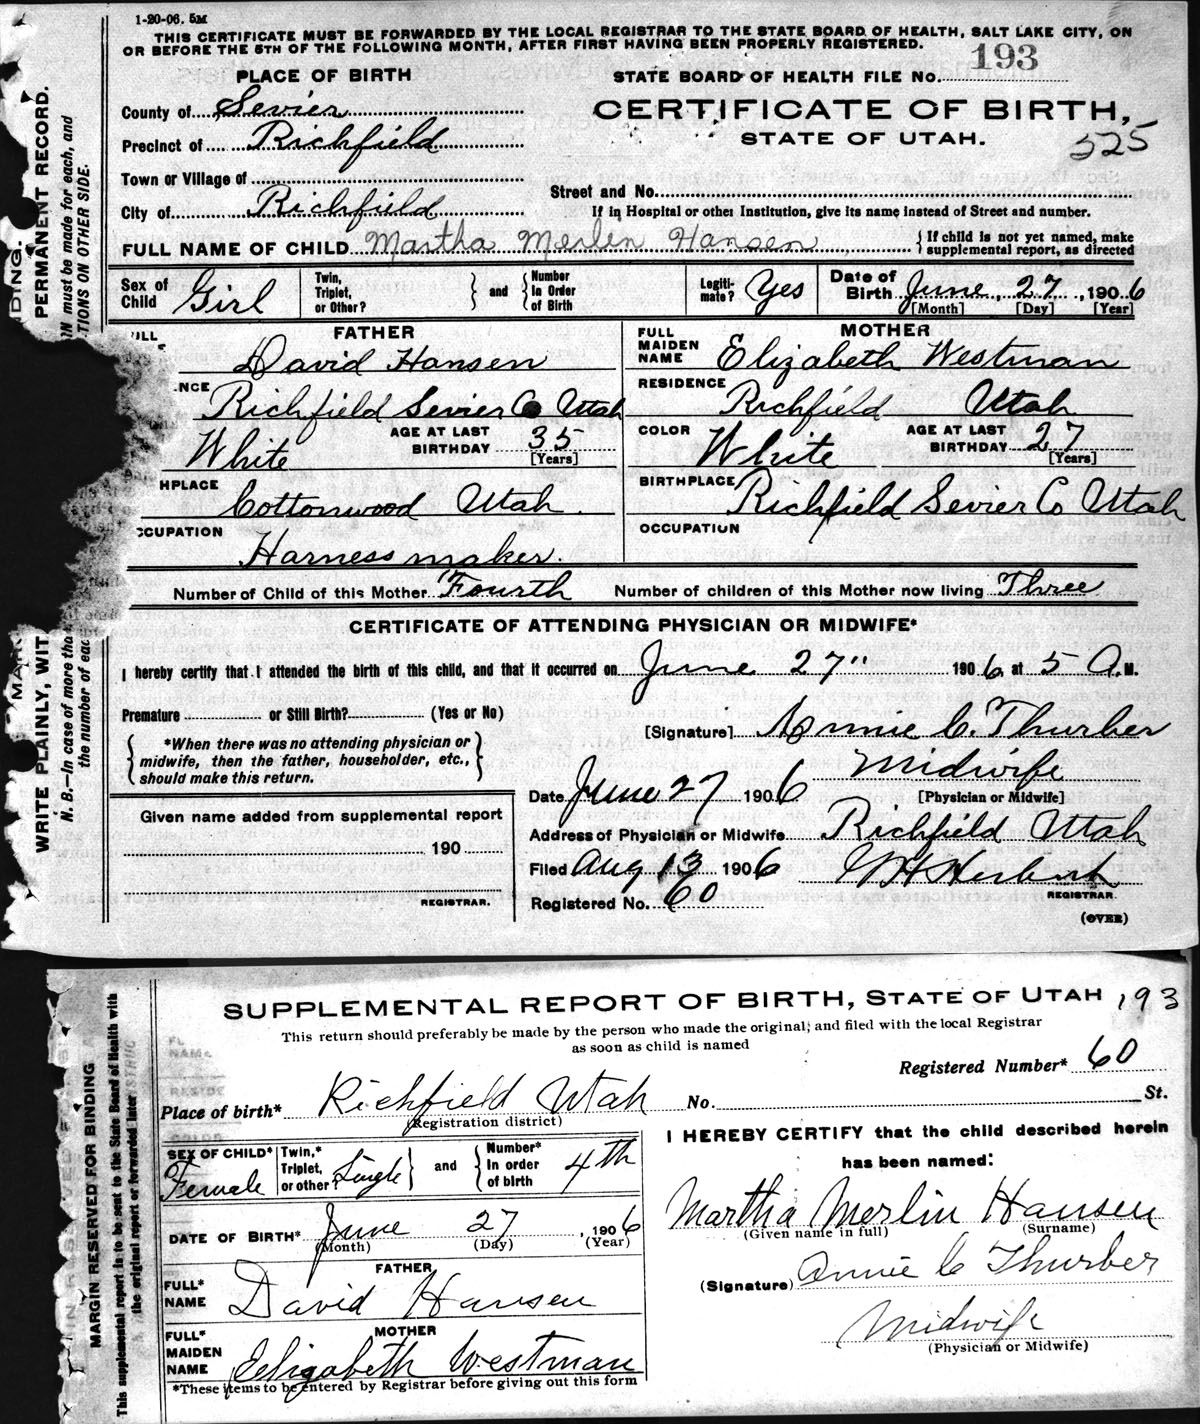 1-20-06. 5M
THIS CERTIFICATE MUST BE FORWARDED BY THE LOCAL REGISTRAR TO THE STATE BOARD OF HEALTH, SALT LAKE CITY, ON
OR BEFORE THE 5TH OF THE FOLLOWING MONTH, AFTER FIRST HAVING BEEN PROPERLY REGISTERED.
PLACE OF BIRTH
STATE BOARD OF HEALTH FILE No. 193
County of Sevier
CERTIFICATE OF BIRTH,
Precinct of Richfield
STATE OF UTAH.
525
Town or Village of
Street and No.
City of Richfield
If in Hospital or other Institution, give its name instead of Street and number.
FULL NAME OF CHILD Martha Merlin Hansen { If child is not yet named, make supplemental report, as directed
Sex of Child Girl Twin, Triplet, or Other? } and { Number in Order of Birth Legitimate? Yes Date of Birth June, 27, 1906
[Month] [Day] [Year]
FATHER
David Hansen
NCE Richfield Sevier Co Utah
White AGE AT LAST BIRTHDAY 35
[Years]
HPLACE Cottonwood Utah.
CCUPATION
Harness maker.
MOTHER
FULL MAIDEN NAME Elizabeth Westman
RESIDENCE Richfield Utah
COLOR White AGE AT LAST BIRTHDAY 27
[Years]
BIRTHPLACE Richfield Sevier Co Utah
OCCUPATION
Number of Child of this Mother Fourth Number of children of this Mother now living Three
CERTIFICATE OF ATTENDING PHYSICIAN OR MIDWIFE*
I hereby certify that I attended the birth of this child, and that it occurred on June 27" 1906, at 5 A.M.
Premature or Still Birth? (Yes or No)
[Signature] Annie C. Thurber
{ *When there was no attending physician or midwife, then the father, householder, etc., should make this return. }
Midwife
Date June 27 1906 [Physician or Midwife]
Given name added from supplemental report
Address of Physician or Midwife Richfield Utah
190
Filed Aug 13 1906
REGISTRAR.
REGISTRAR.
Registered No. 60
(OVER)
DING.
PERMANENT RECORD.
N must be made for each, and
TIONS ON OTHER SIDE.
WRITE PLAINLY, WIT
N. B.—In case of more tha
the number of eac
SUPPLEMENTAL REPORT OF BIRTH, STATE OF UTAH 193
This return should preferably be made by the person who made the original; and filed with the local Registrar
as soon as child is named
Registered Number* 60
Place of birth* Richfield Utah No. St.
(Registration district)
SEX OF CHILD* Female Twin,* Triplet, or other? Single } and { Number* in order of birth 4th
DATE OF BIRTH* June 27, 1906
(Month) (Day) (Year)
FATHER
FULL* NAME David Hansen
MOTHER
FULL* MAIDEN NAME Elizabeth Westman
*These items to be entered by Registrar before giving out this form
I HEREBY CERTIFY that the child described herein
has been named:
Martha Merlin Hansen
(Given name in full) (Surname)
(Signature) Annie C Thurber
Midwife
(Physician or Midwife)
MARGIN RESERVED FOR BINDING
This supplemental report is to be sent to the State Board of Health with
the original report or forwarded later